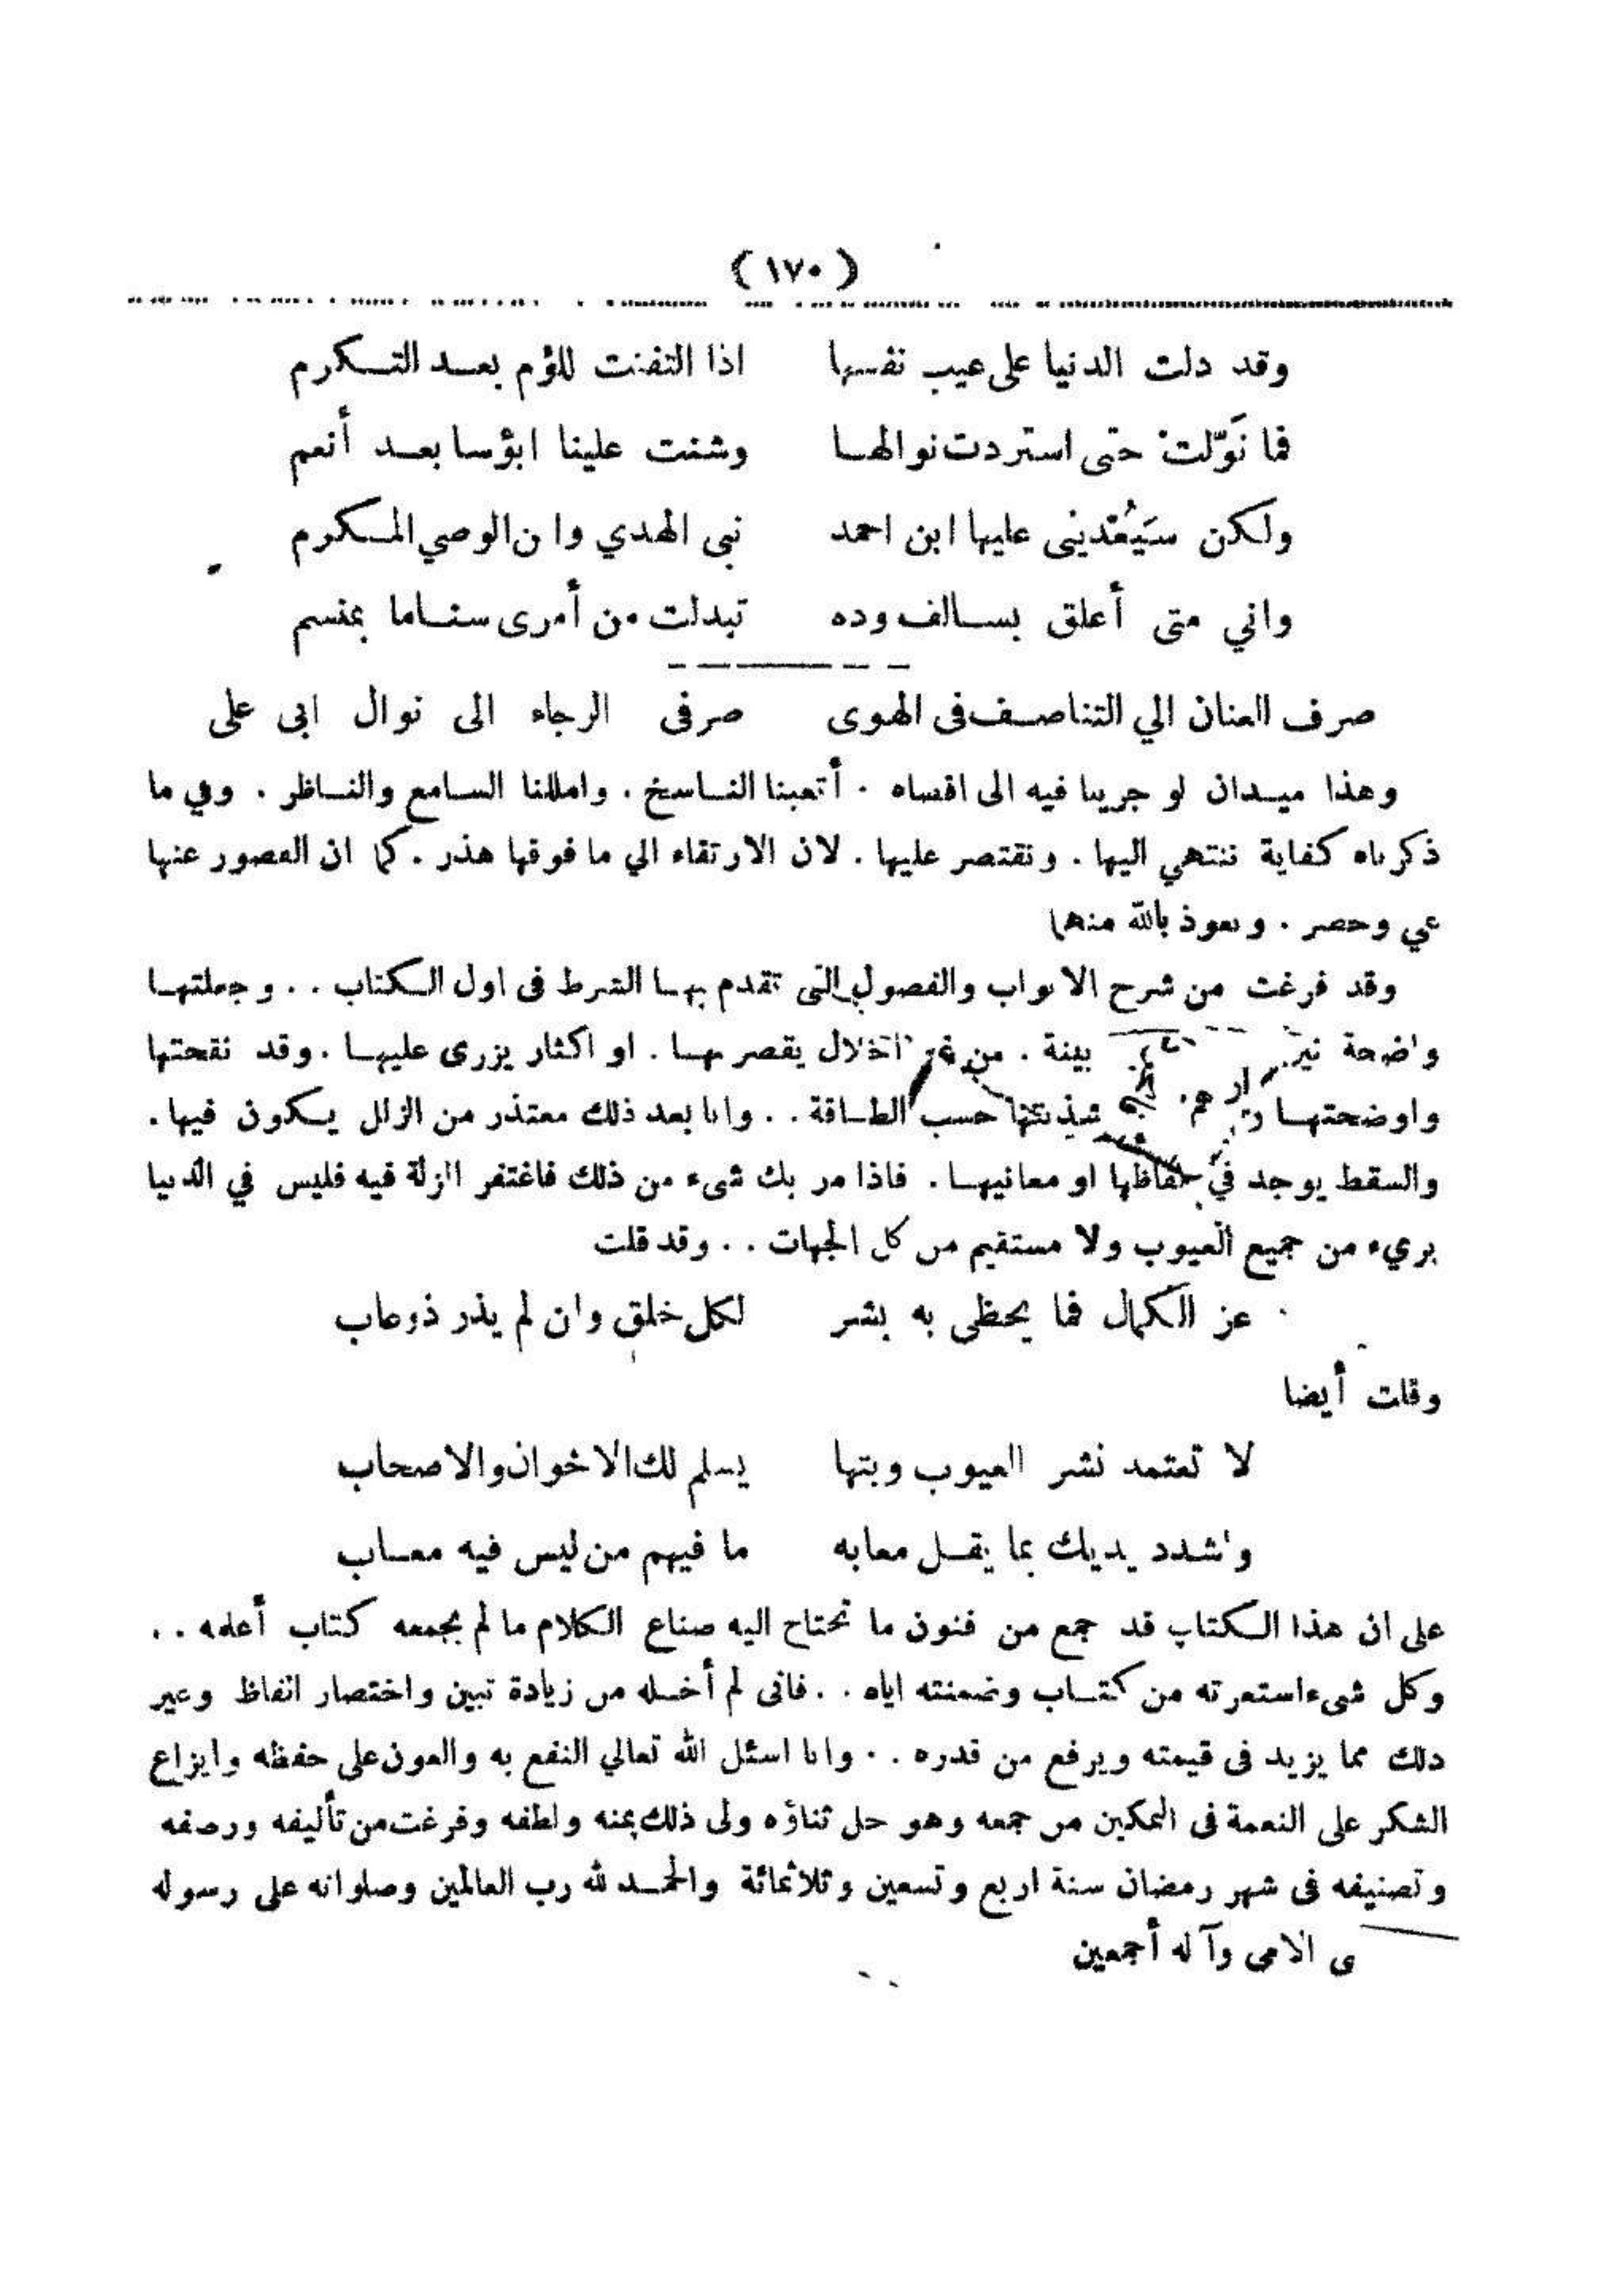 ( ١٧٠ )
وقد دلت الدنيا على عيب نفسها اذا التفتت للؤم بعد التكرم
فما نَوّلت حتى استردت نوالها وشنت علينا ابؤسا بعد أنعم
ولكن سيَعُديني عليها ابن احمد نبي الهدي وا ن الوصي المكرم
واني متى أعلق بسالف وده تبدلت من أمرى سناما بمنسم
صرف العنان الي التناصف فى الهوى صرفى الرجاء الى نوال ابى على
وهذا ميدان لو جرينا فيه الى اقصاه . أتعبنا الناسخ . واملنا السامع والناظر . وفي ما
ذكرناه كفاية ننتهي اليها . ونقتصر عليها . لان الارتقاء الي ما فوقها هذر . كما ان القصور عنها
عي وحصر . ونعوذ بالله منهما
وقد فرغت من شرح الابواب والفصول التى تقدم بها الشرط فى اول الكتاب . . وجعلتها
واضحة بينة . من غير اخلال يقصر بها . او اكثار يزرى عليها . وقد نقحتها
واوضحتها حسب الطاقة . . وانا بعد ذلك معتذر من الزلل يكون فيها .
والسقط يوجد في الفاظها او معانيها . فاذا مر بك شىء من ذلك فاغتفر الزلة فيه فليس في الدنيا
بريء من جميع العيوب ولا مستقيم من كل الجهات . . وقد قلت
عز الكمال فما يحظى به بشر لكل خلق وان لم يذر ذو عاب
وقلت أيضا
لا تعتمد نشر العيوب وبثها يسلم لك الاخوان والاصحاب
واشدد يديك بما يقل معابه ما فيهم من ليس فيه معاب
على ان هذا الكتاب قد جمع من فنون ما تحتاج اليه صناع الكلام ما لم يجمعه كتاب أعلمه . .
وكل شىء استعرته من كتاب وضمنته اياه . . فانى لم أخله من زيادة تبين واختصار الفاظ وغير
ذلك مما يزيد فى قيمته ويرفع من قدره . . وانا اسئل الله تعالي النفع به والعون على حفظه وايزاع
الشكر على النعمة فى التمكين من جمعه وهو جل ثناؤه ولى ذلك بمنه ولطفه وفرغت من تأليفه ورصفه
وتصنيفه فى شهر رمضان سنة اربع وتسعين وثلاثمائة والحمد لله رب العالمين وصلواته على رسوله
ى الامى وآله أجمعين